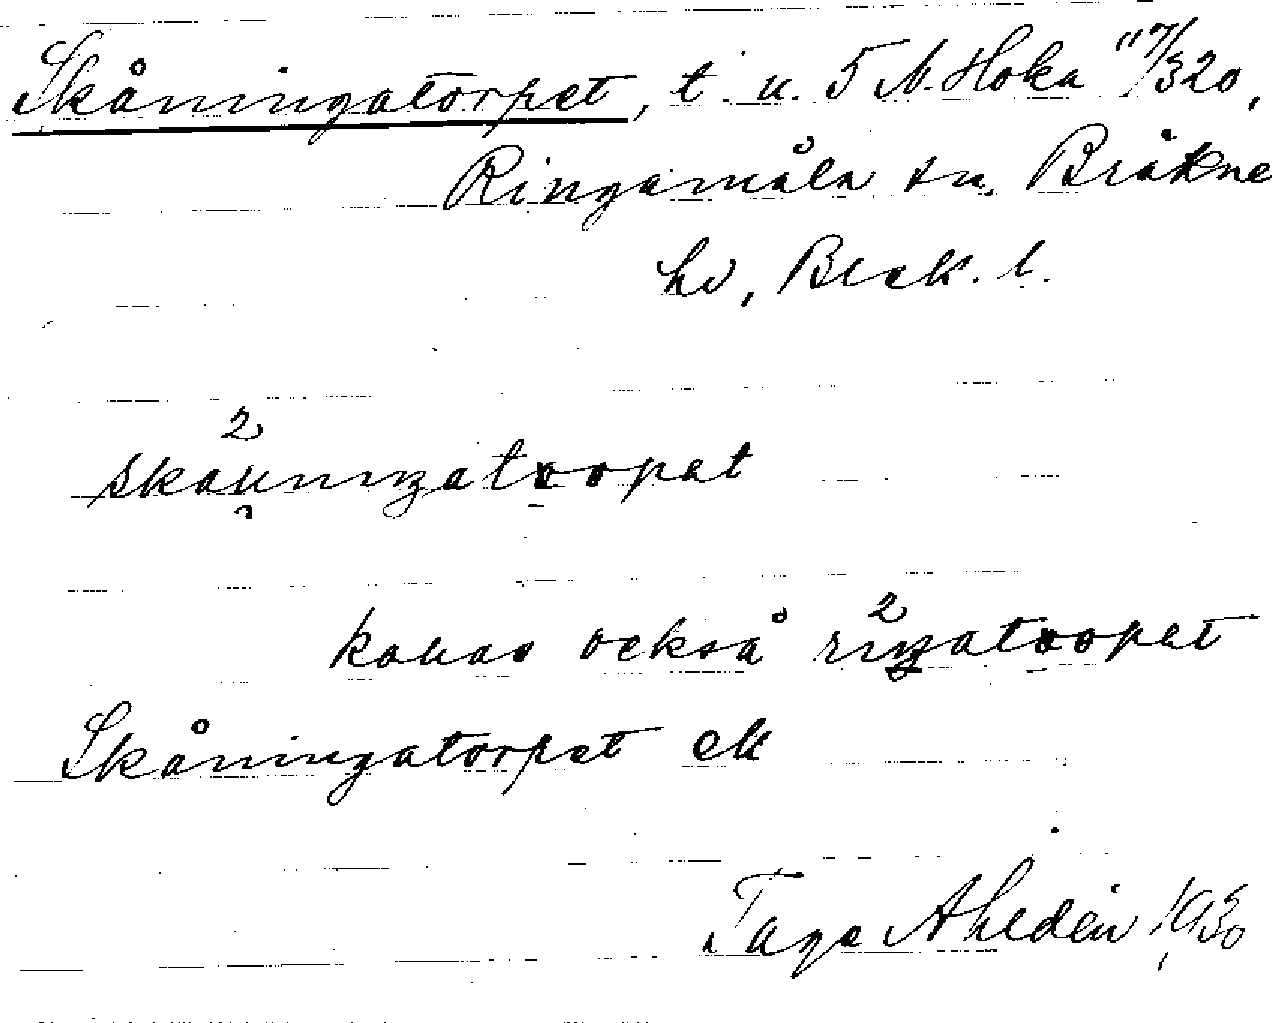 Skåningatorpet, t. u. 5 N. Hoka 117/320,
Ringamåla sn. Bräkne
hd, Blek. l.
2
skåuniŋatorpat
kallas också riŋatorpet
Skåningatorpet ek
Tage Ahldén 1930